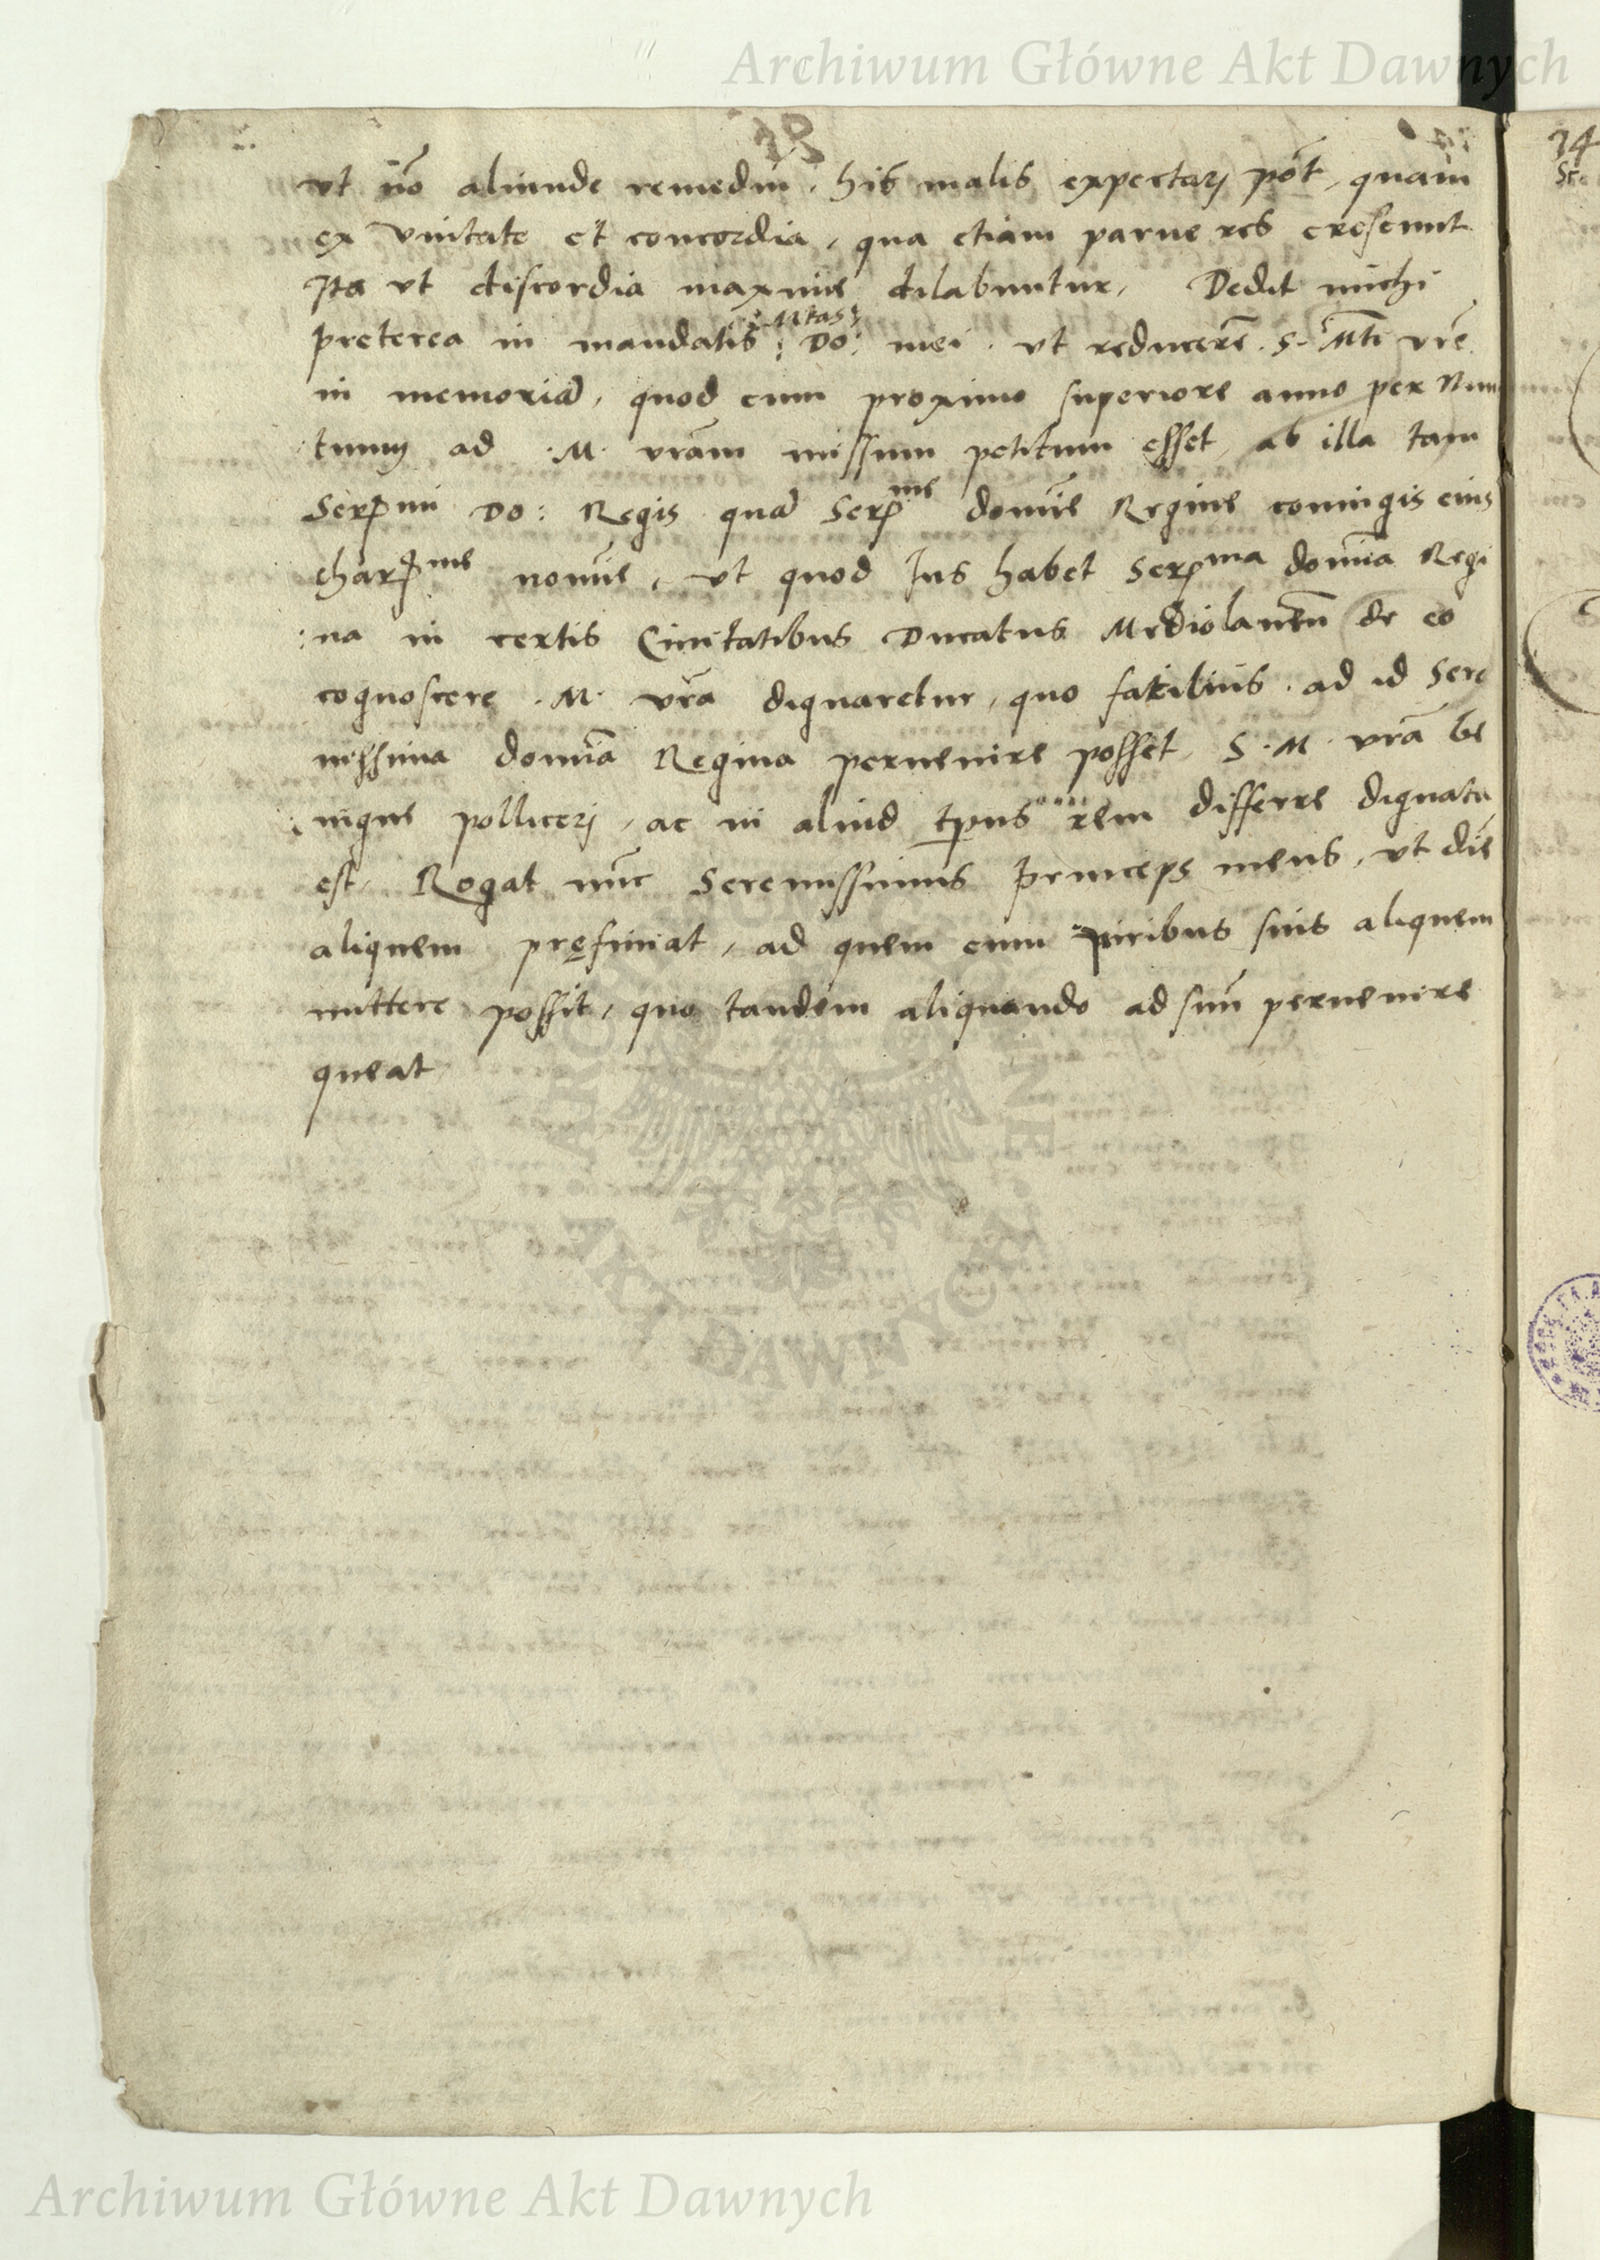 Archiwum Główne Akt Dawnych
ut nō aliunde remediū, his malis expectarj pōt, quam
ex Vnitate et concordia, qua etiam parue res crescunt
Ita ut discordia maxime dilabuntur, Dedit michi
Mtas
preterea in mandatis Do: mei, ut reducerē S. Mti vrē
in memoriā, quod cum proximo superiore anno per Nun
tium ad M. vrām missum petitum esset, ab illa tam
Serᵐⁱ Do: Regis quā Serᵐᵉ domīe Regine coniugis eius
charᵐᵉ nomīe, ut quod Ius habet Serᵐᵃ domīa Regi
na in certis Ciuitatibus Ducatus Mediolanēn de eo
cognoscere M. vrā dignaretur, quo facilius ad id Sere
nissima domīa Regina peruenire posset, S. M. vrā be
nigne pollicerj, ac in aliud tp̄us rem differre dignata
est, Rogat nūc Serenissimus Princeps meus, ut diē
aliquem pręfiniat, ad quem cum iuribus suis aliquem
mittere possit, quo tandem aliquando ad suū peruenire
queat
ARCHIWUM GŁÓWNE AKT DAWNYCH
Archiwum Główne Akt Dawnych